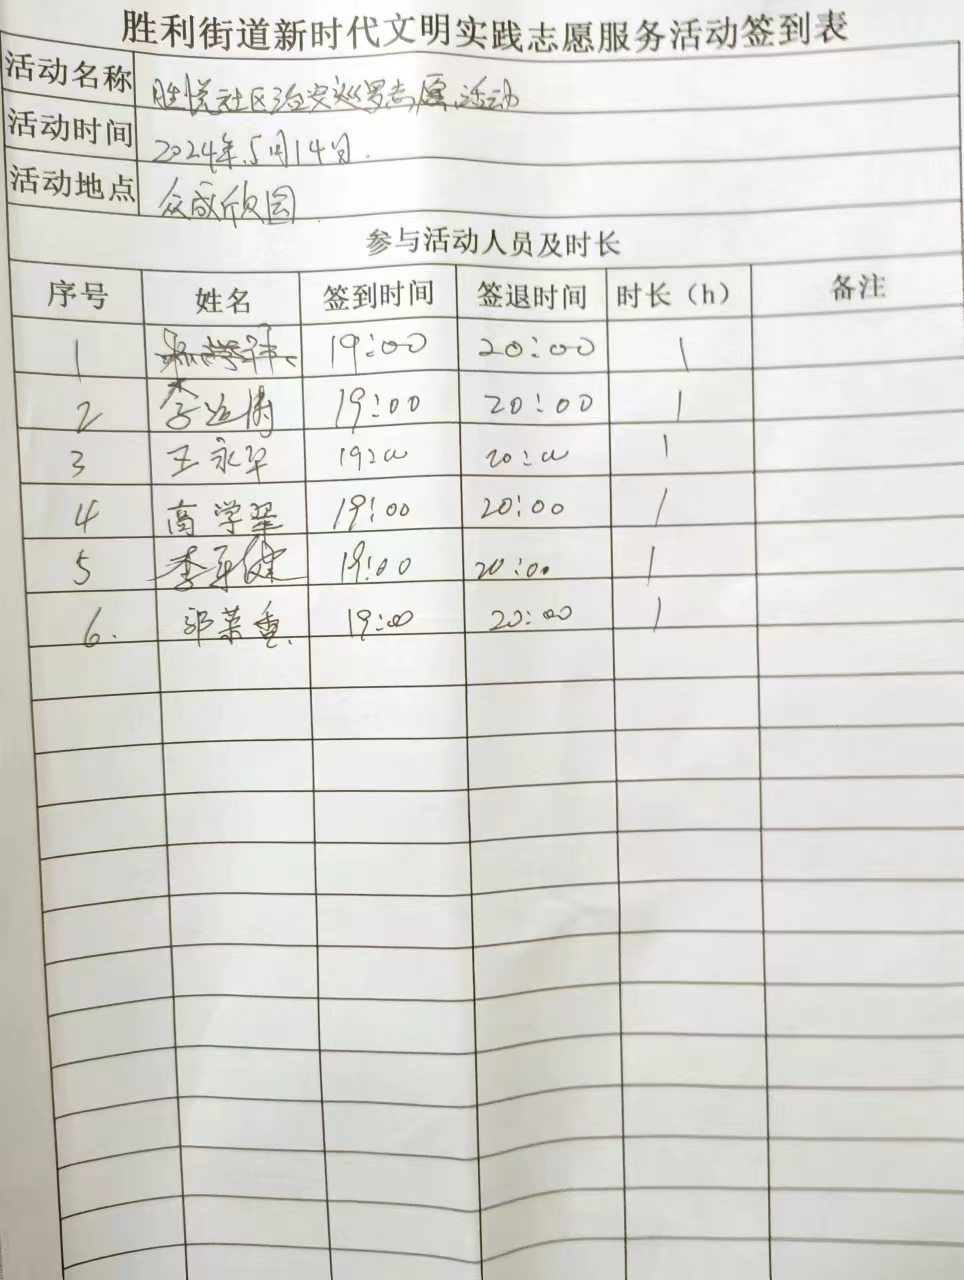 胜利街道新时代文明实践志愿服务活动签到表
活动名称 胜悦社区治安巡罗志愿活动
活动时间 2024年5月14日.
活动地点 众成欣园.
参与活动人员及时长
序号 姓名 签到时间 签退时间 时长（h） 备注
1 19:00 20:00 1
2 李 19:00 20:00 1
3 王永军 19:00 20:00 1
4 高学翠 19:00 20:00 1
5 李 健 19:00 20:00 1
6. 郭 香. 19:00 20:00 1